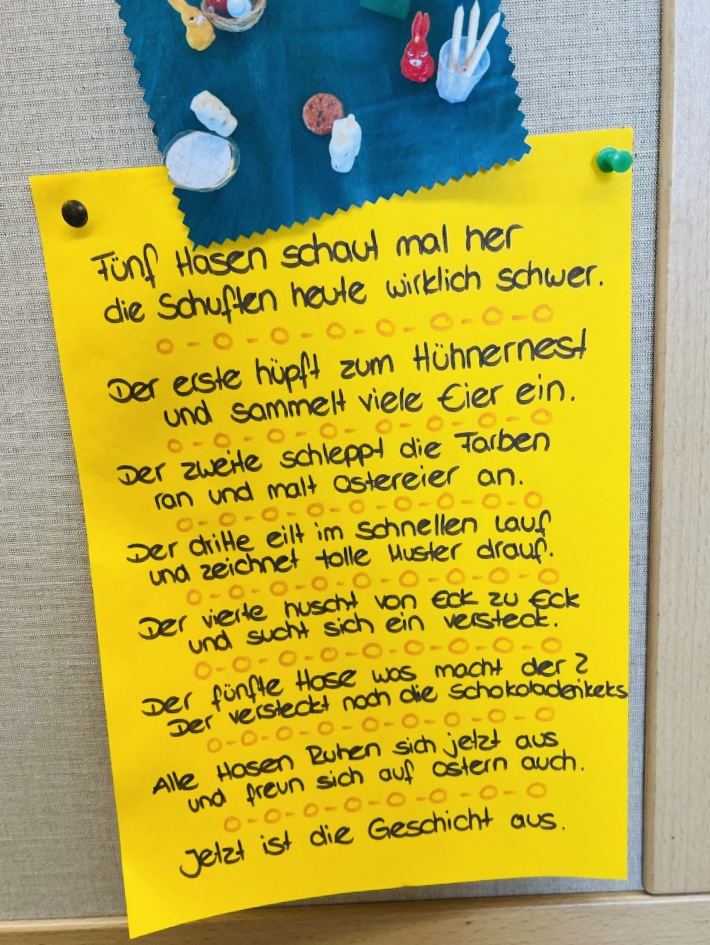 Fünf Hasen schaut mal her
die Schuften heute wirklich schwer.
Der erste hüpft zum Hühnernest
und sammelt viele Eier ein.
Der zweite schleppt die Farben
ran und malt Ostereier an.
Der dritte eilt im Schnellen Lauf
und zeichnet tolle Muster drauf.
Der vierte huscht von Eck zu Eck
und sucht sich ein versteck.
Der fünfte Hase was macht der?
Der versteckt noch die Schokoladenkeks
Alle Hasen Ruhen sich jetzt aus
und freun sich auf Ostern auch.
Jetzt ist die Geschicht aus.